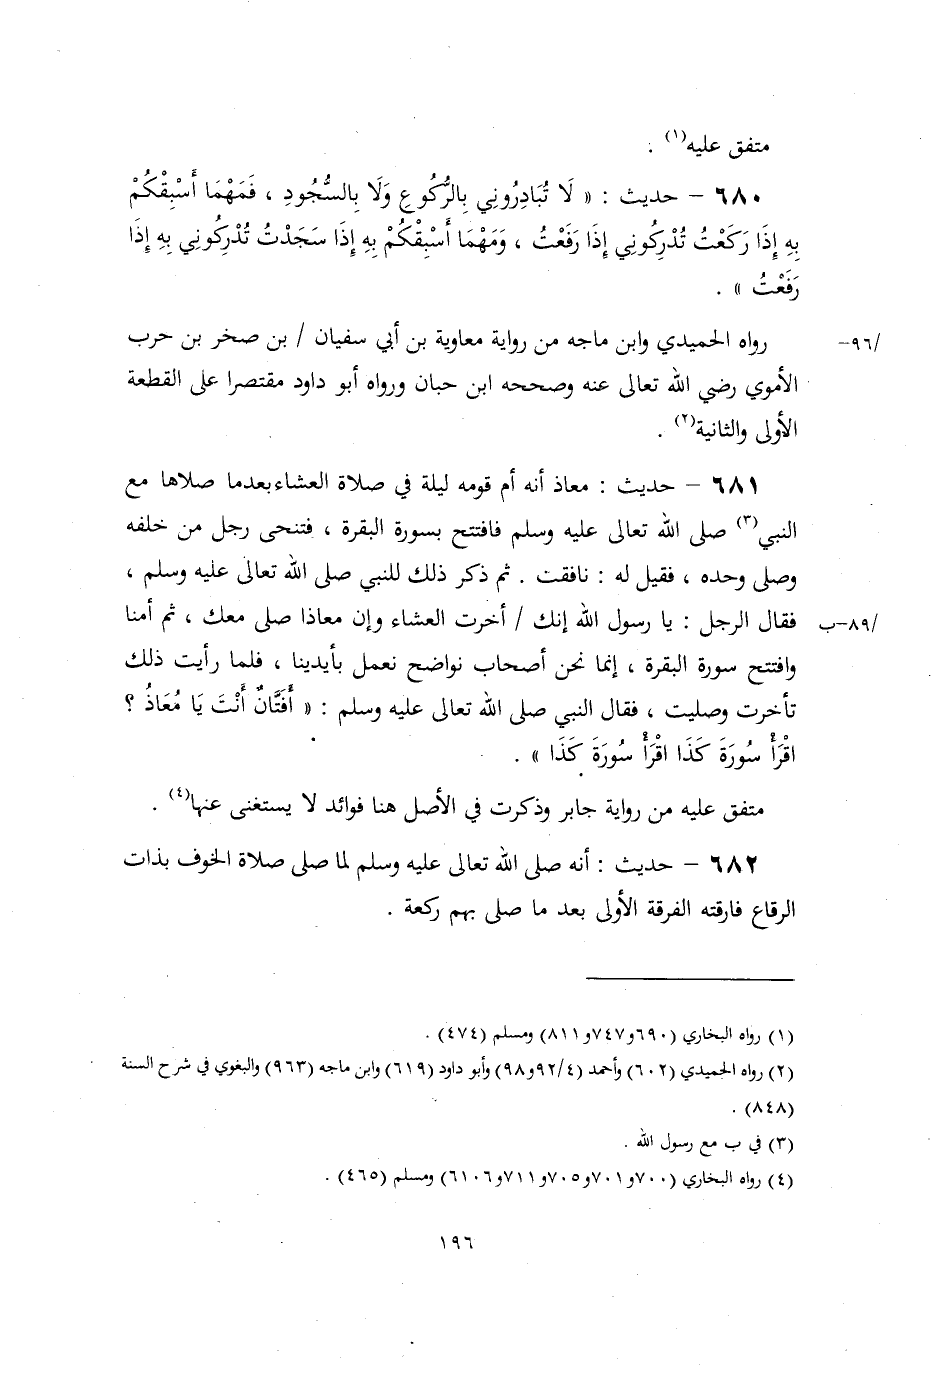 متفق عليه(١) .
٦٨٠ – حديث : « لَا تُبَادِرُونِي بِالرُّكُوعِ وَلَا بِالسُّجُودِ ، فَمَهْمَا أَسْبِقْكُمْ
بِهِ إِذَا رَكَعْتُ تُدْرِكُونِي إِذَا رَفَعْتُ ، وَمَهْمَا أَسْبِقْكُمْ بِهِ إِذَا سَجَدْتُ تُدْرِكُونِي بِهِ إِذَا
رَفَعْتُ » .
/٩٦– رواه الحميدي وابن ماجه من رواية معاوية بن أبي سفيان / بن صخر بن حرب
الأموي رضي الله تعالى عنه وصححه ابن حبان ورواه أبو داود مقتصرا على القطعة
الأولى والثانية(٢) .
٦٨١ – حديث : معاذ أنه أم قومه ليلة في صلاة العشاء بعدما صلاها مع
النبي(٣) صلى الله تعالى عليه وسلم فافتتح بسورة البقرة ، فتنحى رجل من خلفه
وصلى وحده ، فقيل له : نافقت . ثم ذكر ذلك للنبي صلى الله تعالى عليه وسلم ،
/٨٩–ب فقال الرجل : يا رسول الله إنك / أخرت العشاء وإن معاذا صلى معك ، ثم أمنا
وافتتح سورة البقرة ، إنما نحن أصحاب نواضح نعمل بأيدينا ، فلما رأيت ذلك
تأخرت وصليت ، فقال النبي صلى الله تعالى عليه وسلم : « أَفَتَّانٌ أَنْتَ يَا مُعَاذُ ؟
اقْرَأْ سُورَةَ كَذَا اقْرَأْ سُورَةَ كَذَا » .
متفق عليه من رواية جابر وذكرت في الأصل هنا فوائد لا يستغنى عنها(٤) .
٦٨٢ – حديث : أنه صلى الله تعالى عليه وسلم لما صلى صلاة الخوف بذات
الرقاع فارقته الفرقة الأولى بعد ما صلى بهم ركعة .
(١) رواه البخاري (٦٩٠و٧٤٧و٨١١) ومسلم (٤٧٤) .
(٢) رواه الحميدي (٦٠٢) وأحمد (٩٢/٤و٩٨) وأبو داود (٦١٩) وابن ماجه (٩٦٣) والبغوي في شرح السنة
(٨٤٨) .
(٣) في ب مع رسول الله .
(٤) رواه البخاري (٧٠٠و٧٠١و٧٠٥و٧١١و٦١٠٦) ومسلم (٤٦٥) .
١٩٦